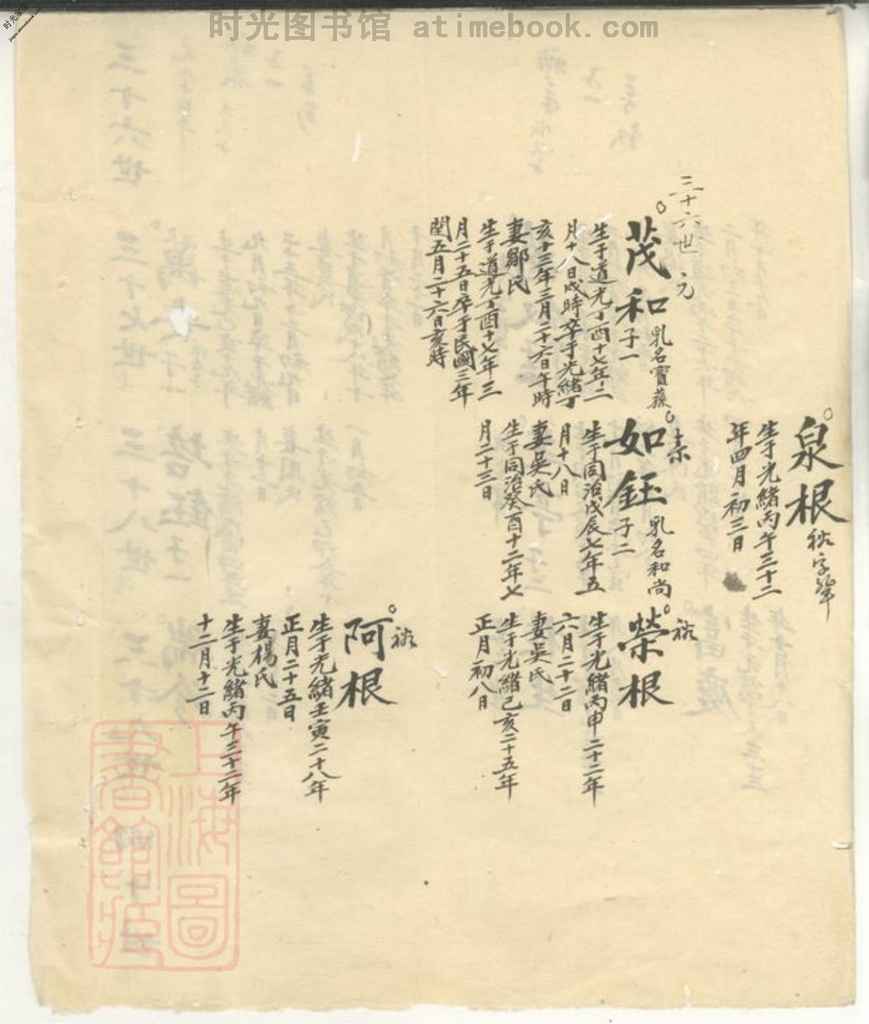 时光图书馆 atimebook.com
泉根
生于光緒丙午三十二
年四月初三日
三十六世 元
茂和
子一
乳名寶
生于道光丁酉十七年二
月十八日戌時卒于光緒丁
亥十三年三月二十六日午時
妻鄒氏
生于道光丁酉十七年三
月二十五日卒于民國三年
閏五月二十六日亥時
如鈺
子二
乳名和尚
生于同治戊辰七年五
月十八日
妻吳氏
生于同治癸酉十二年七
月二十三日
榮根
生于光緒丙申二十二年
六月二十二日
妻吳氏
生于光緒己亥二十五年
正月初八日
阿根
生于光緒壬寅二十八年
正月二十五日
妻楊氏
生于光緒丙午三十二年
十二月十二日
上海圖
書館藏